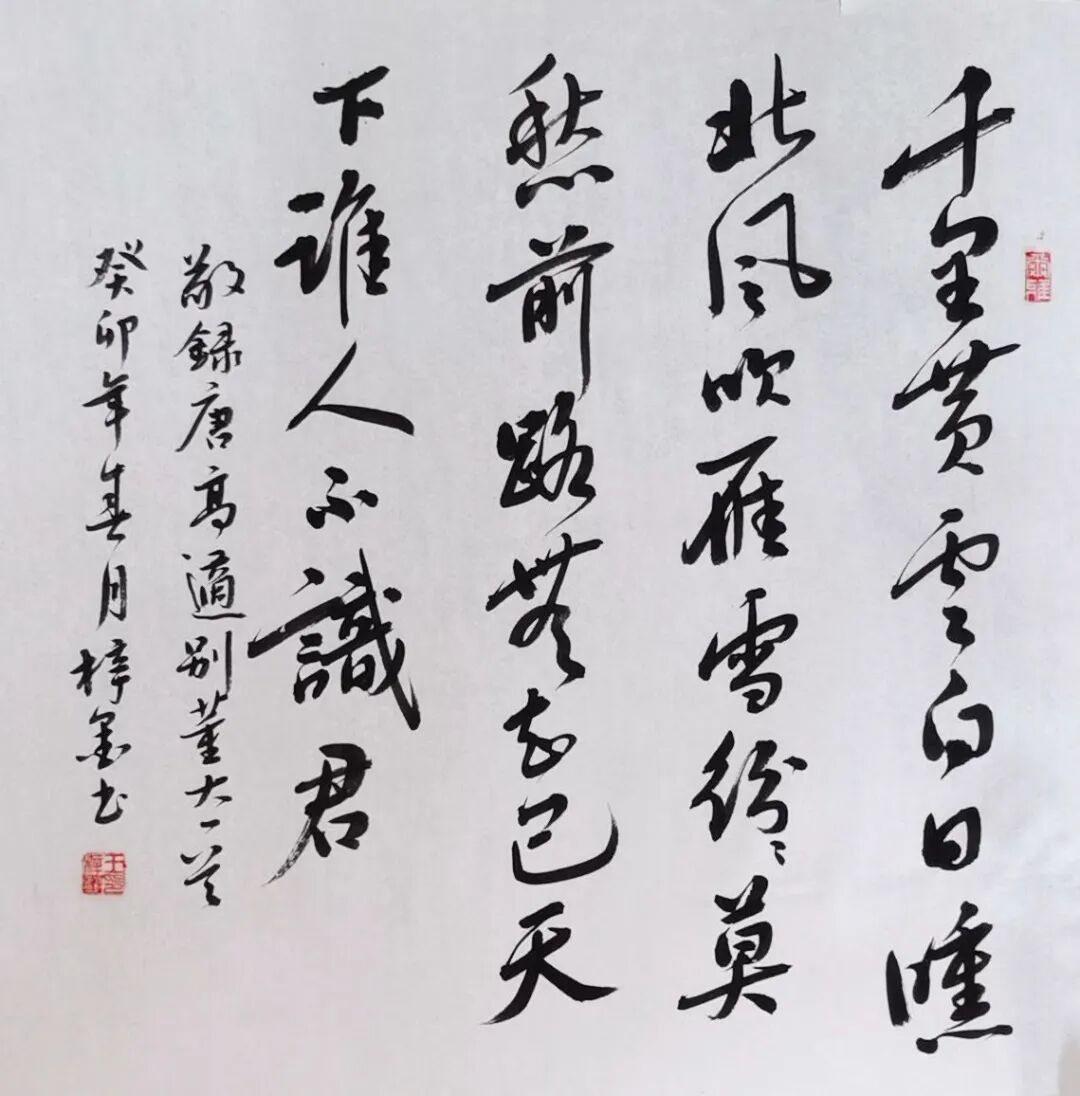 千里黄雲白日曛
北风吹雁雪纷纷莫
愁前路無知己天
下誰人不識君
敬録唐高適别董大一首
癸卯年春月梓墨书